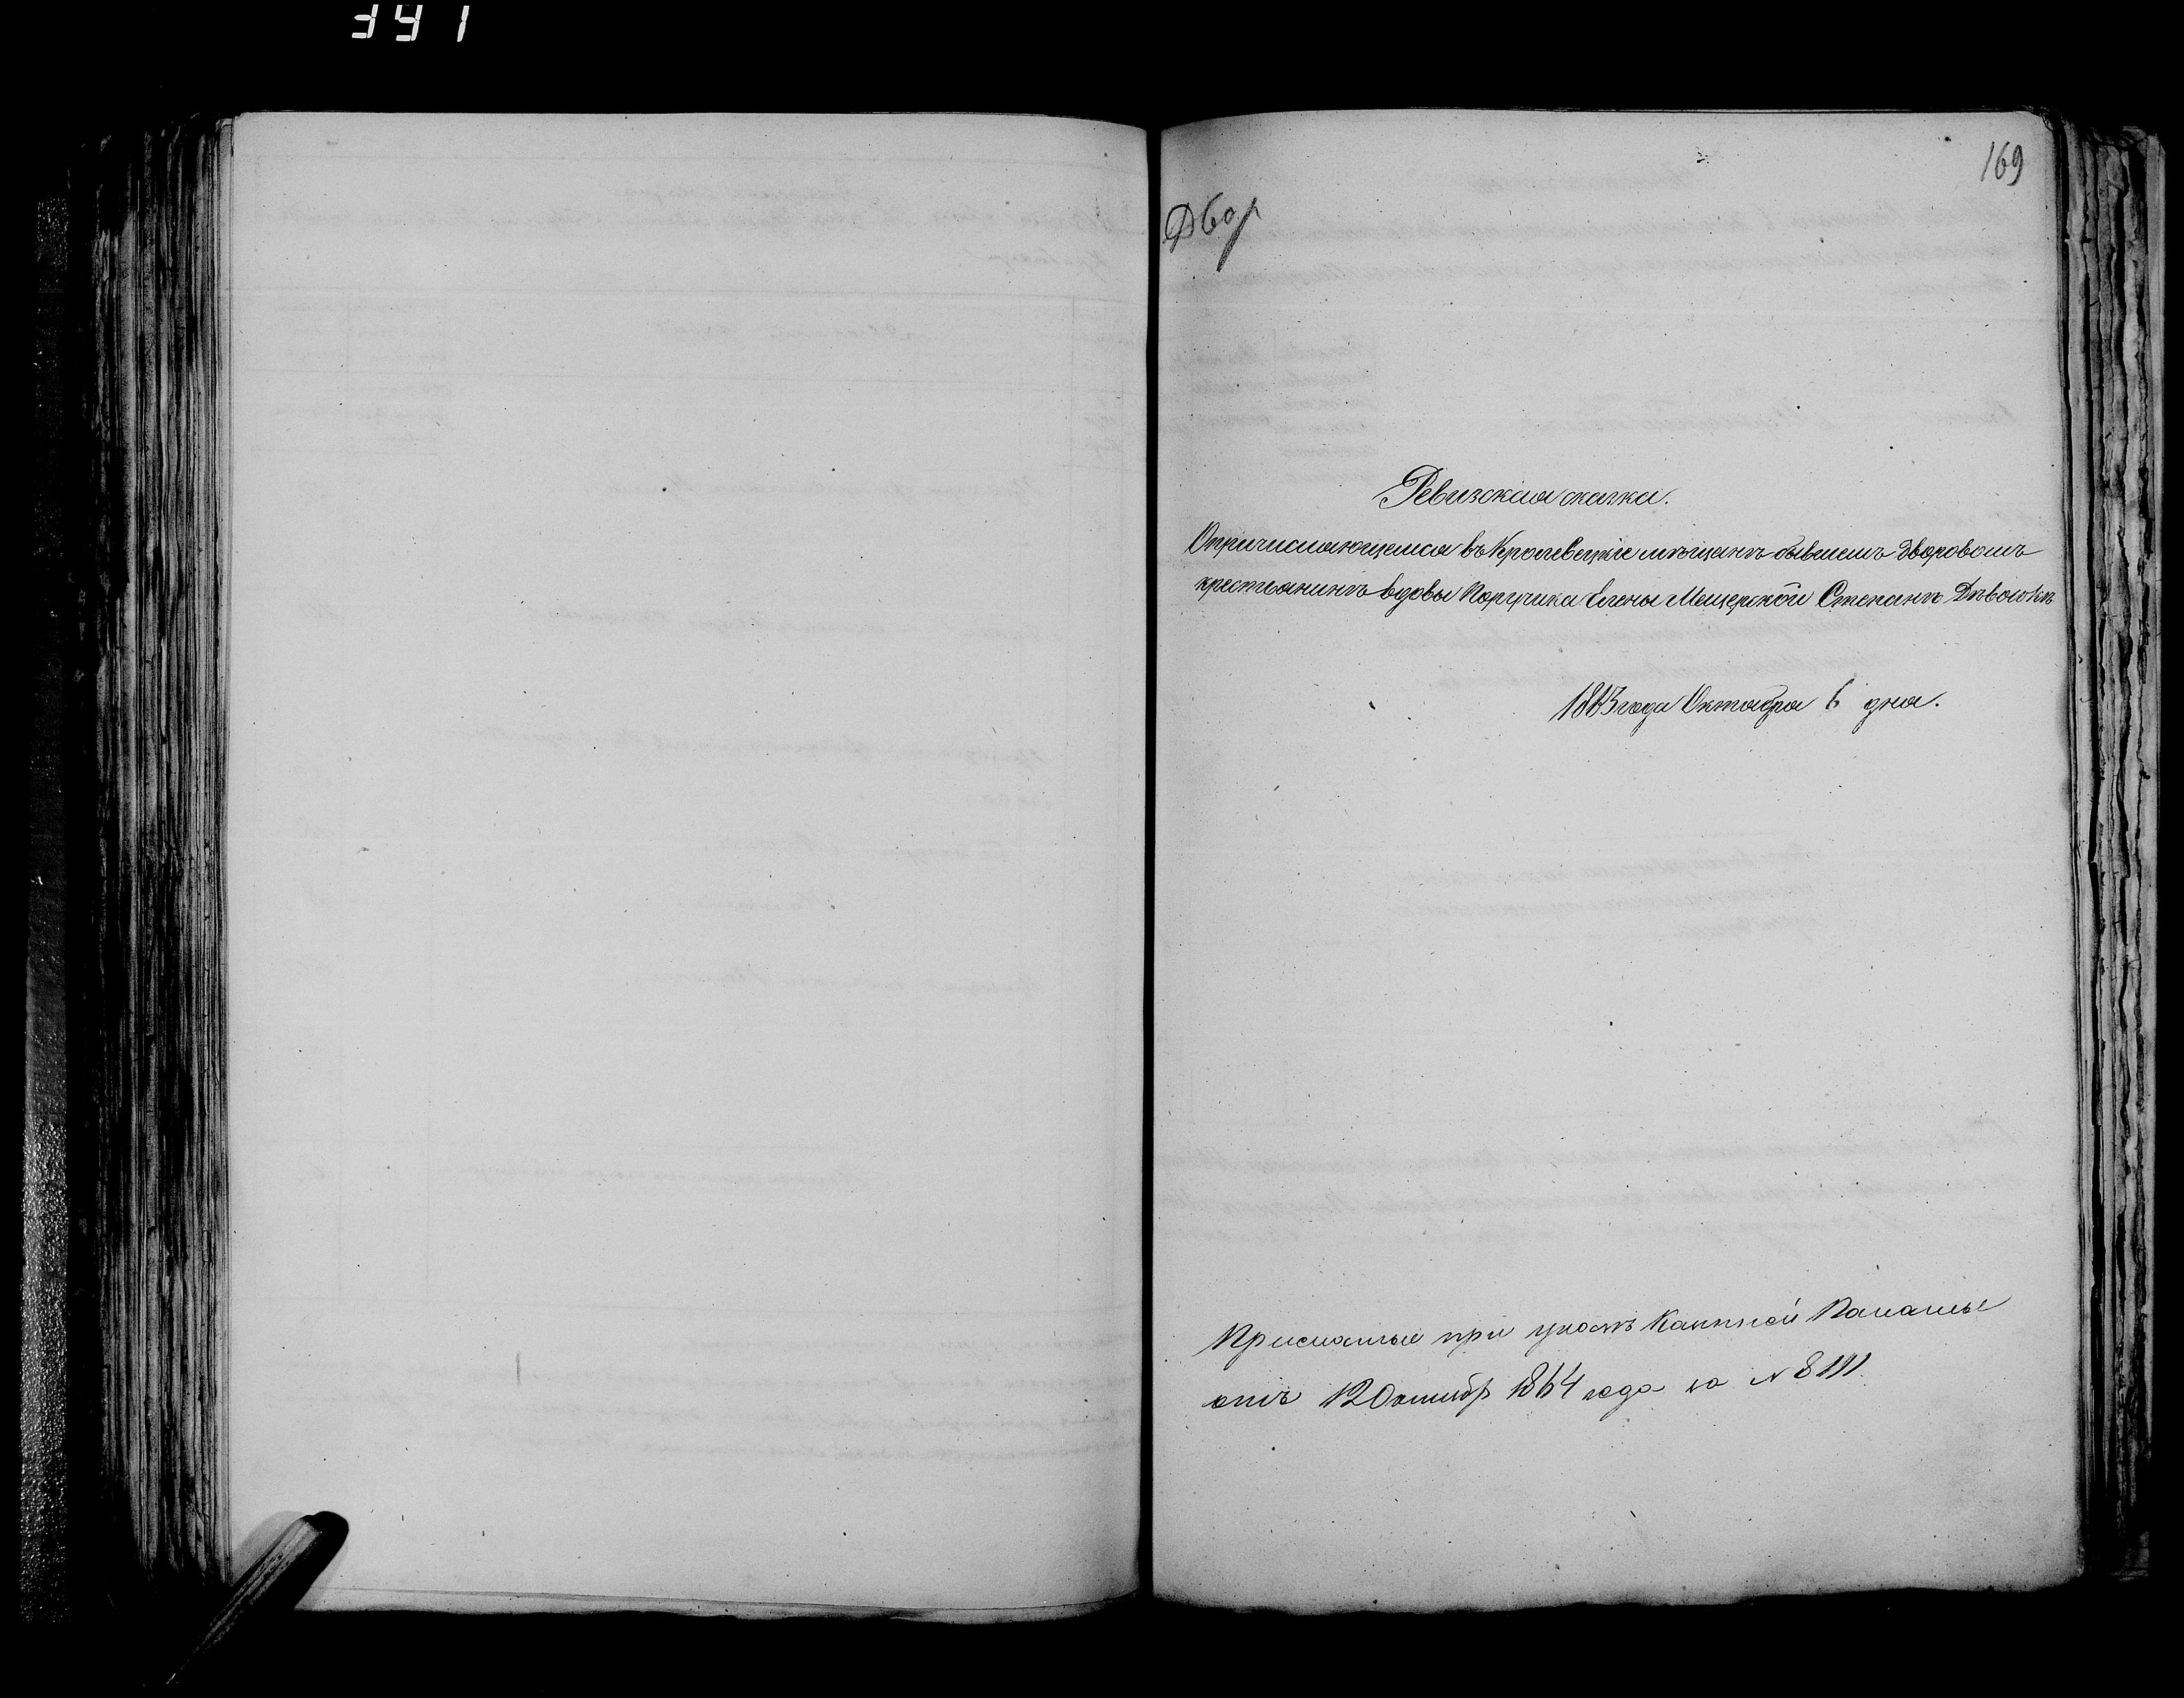 391
169
Двор
Ревизская сказка.
О причисляющемся въ Кролевецкіе мѣщане бывшемъ дворовомъ
крестьянинѣ вдовы Поручика Елены Мещерской Степанѣ
1863 года Октября 6 дня.
Присланые при указѣ Казенной Палаты
отъ 12 Октябр 1864 года за №